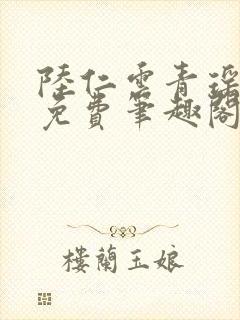 陸仁雲青瑤
免費筆趣閣
樓蘭玉娘